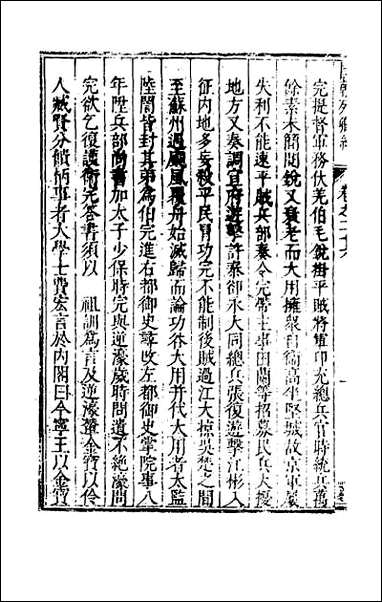 完提督軍務伏羌伯毛銳掛平賊將軍印充總兵官時統兵萬
餘素未簡閱銳又衰老而大用擁衆自衛高坐堅城故京軍屢
失利不能速平賊兵部奏令完帶主事田蘭等招募民兵大擾
地方又奏調宣府遊擊許泰卻永大同總兵張俊遊擊江彬入
征内地多妄殺平民冒功完不能制後賊過江大掠吳楚之間
至蘇州遇颶風覆舟始滅歸而論功谷大用幷代大用者太監
陸誾皆封其弟爲伯完進右都御史尋改左都御史掌院事八
年陞兵部尚書加太子少保時完與逆濠歲時問遺不絶濠問
完欲乞復護衛完答書須以 祖訓爲言及逆濠輦金寶以伶
人臧賢分饋柄事者大學士費宏言於内閣曰今寧王以金寶
卷之二十六